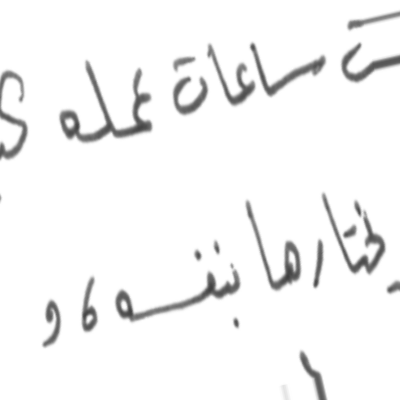 ساعات عمله
يختارها بنفسه، و